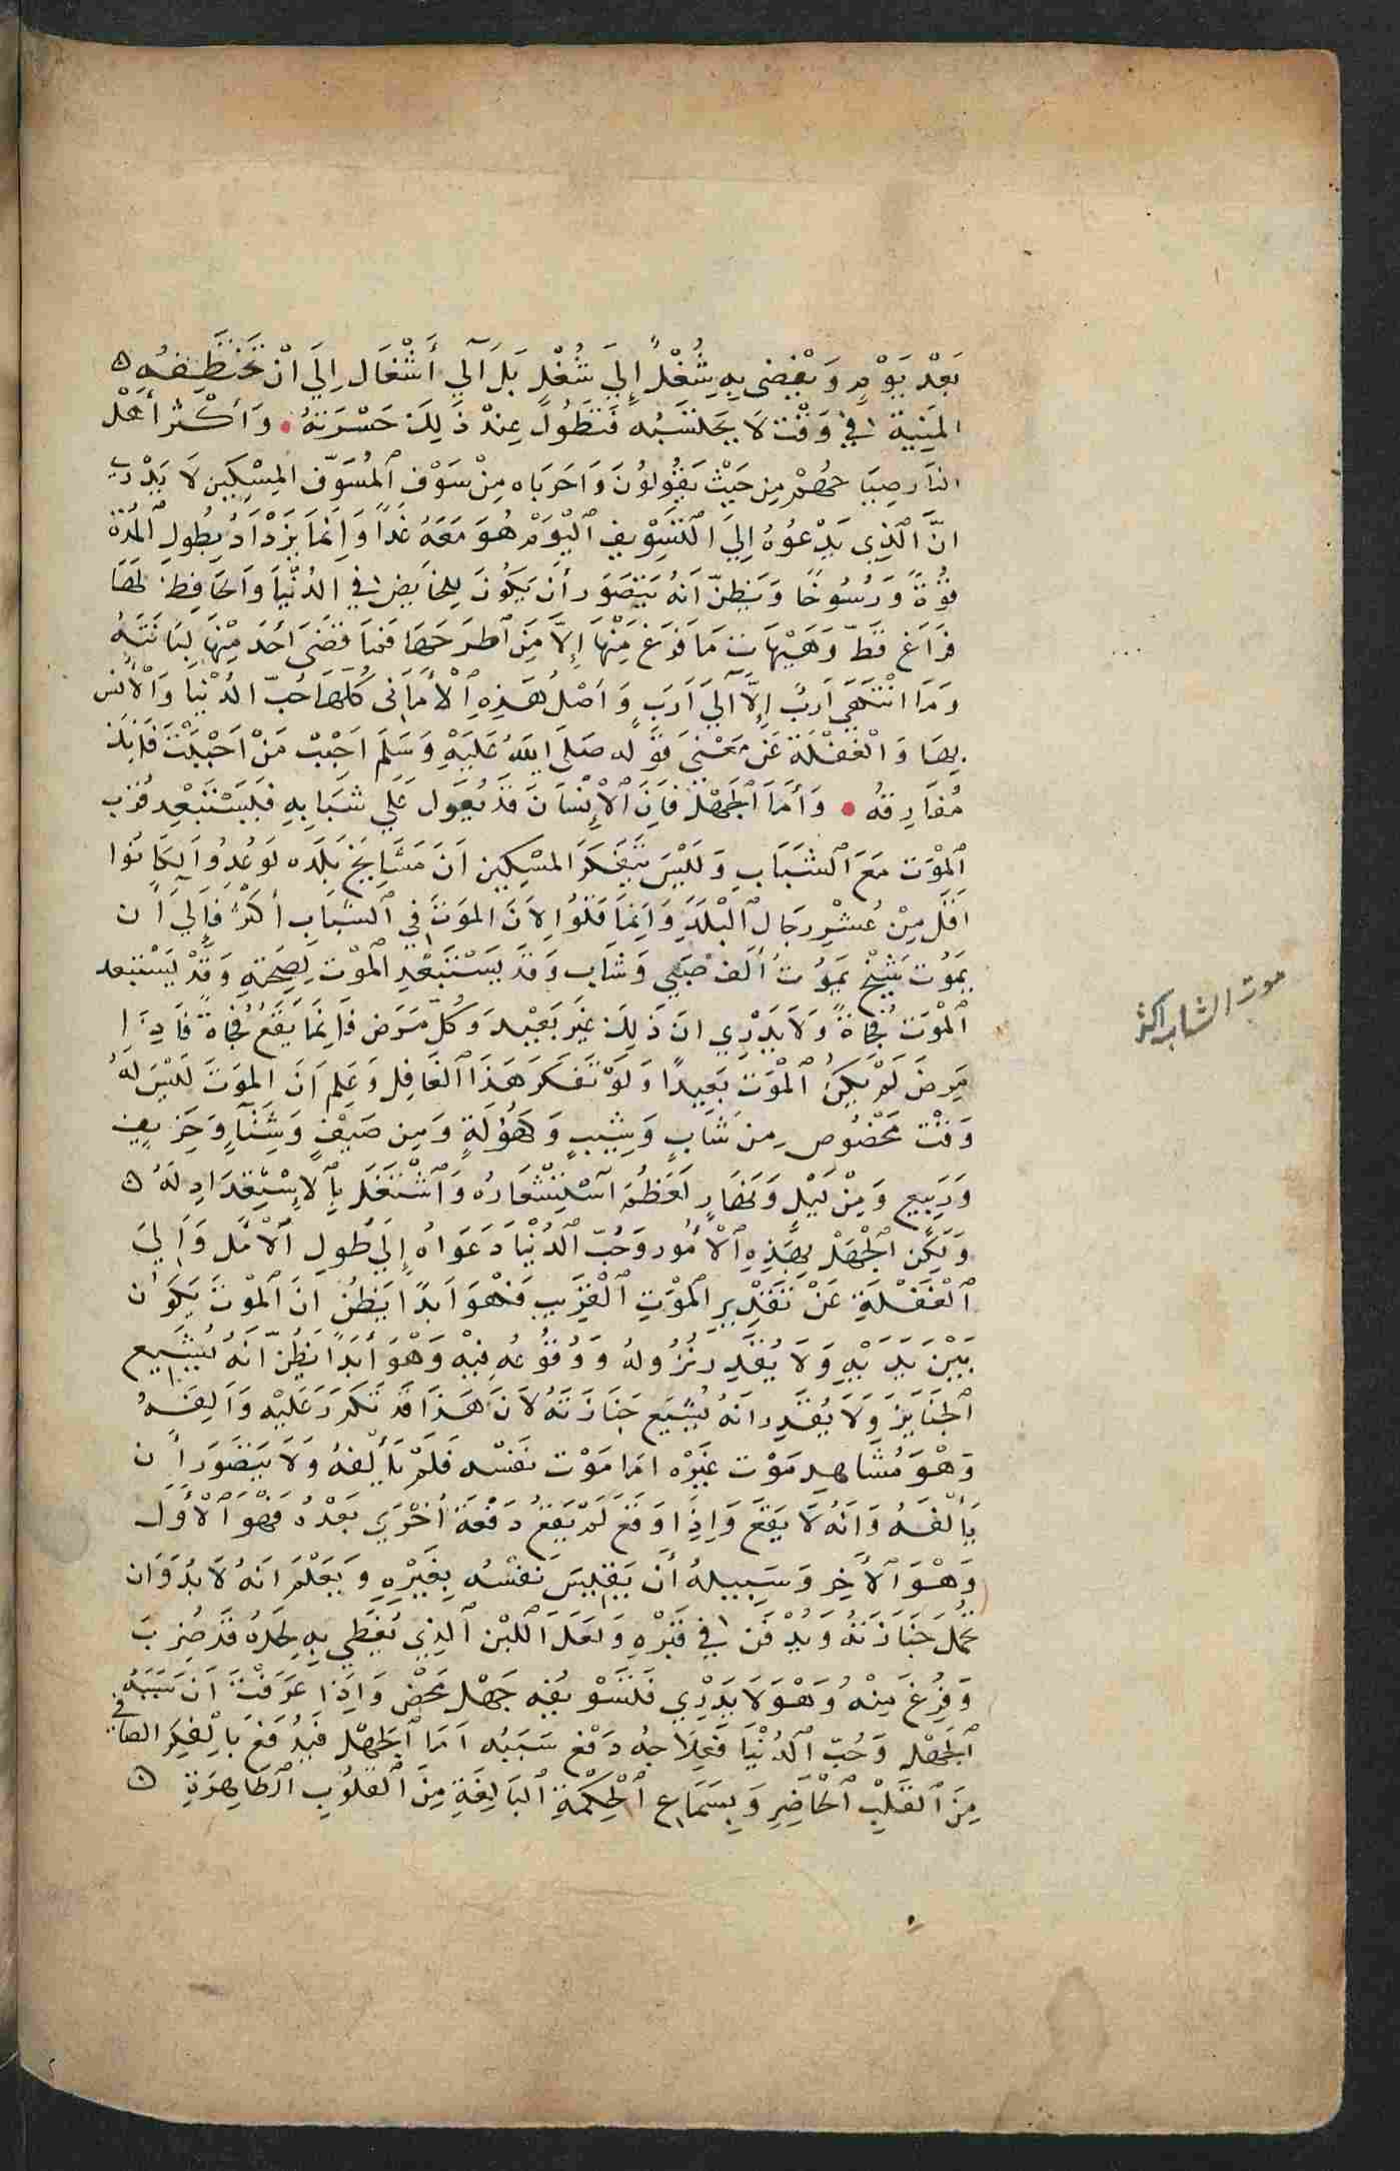 بَعْدَ يَوْمٍ وَيُفْضِى بِهِ شُغْلٌ إِلَى شُغْلٍ بَلْ اِلَى أَشْغَال اِلَى اَنْ تَخْتَطِفَهُ
المَنِيّة فِي وَقْتٍ لَا يَحْتَسِبُه فَتَطُولُ عِنْدَ ذَلِكَ حَسْرَتَهُ • وَأَكْثَرُ أَهْل
النَّار صِيَاحُهُمْ مِن حَيْث يَقُولُونَ وَاحَرَبَاه مِنْ سَوْف المُسَوِّف المِسْكِين لَا يَدْرِي
انَّ الَّذِي يَدْعُوهُ اِلَى التَّسْوِيفِ الْيَوْمَ هُوَ مَعَهُ غَدًا وَاِنَّمَا يَزْدَادُ بِطُولِ الْمُدَّة
قُوَّةً وَرُسُوخًا وَيَظُنّ اَنَّهُ يَتَصَوَّر أَنْ يَكُونَ لِلخَايِض فِي الدُّنْيَا وَالحَافِظِ لَهَا
فَرَاغ قَطّ وَهَيْهَاتَ مَا فَرَغَ مِنْهَا إِلَّا مَنِ اطَّرَحَهَا فَمَا قَضَى اَحَد مِنْهَا لُبَانَتَهُ
وَمَا انْتَهَى اَرَبٌ اِلَّا اِلَى اَرَبٍ وَاَصْلُ هَذِهِ الْأَمَانِى كُلّهَا حُبّ الدُّنْيَا وَالْأُنْس
بِهَا وَالْغَفْلَة عَن مَعْنَى قَوْله صَلَّى اللهُ عَلَيْهِ وَسَلَّم اَحْبِبْ مَنْ اَحْبَبْتَ فَاِنَّكَ
مُفَارِقهُ • وَأَمَّا الجَهْل فَاِنَّ الْإِنْسَانَ قَدْ يُعَوِّل عَلَى شَبَابِهِ فَيَسْتَبْعِد قُرْب
المَوْت مَعَ الشَّبَابِ وَلَيْسَ يَتَفَكَّر المِسْكِين اَنَّ مَشَايِخَ بَلَدِه لَوْ عُدُّوا لَكَانُوا
اَقَلّ مِنْ عُشْر رِجَال الْبَلَدِ وَاِنَّمَا قَلُّوا لِاَنَّ المَوْتَ فِي الشَّبَابِ أكْثَرُ فَاِلَى اَن
يَمُوت شَيْخ يَمُوتُ أَلْف صَبِي وَشَاب وَقَدْ يَسْتَبْعِد المَوْت لِصِحَّتِهِ وَقَدْ يَسْتَبْعد
الْمَوْتَ فُجَاةً وَلَا يَدْرِي انَّ ذَلِكَ غَيْر بَعِيْد وَكُلّ مَرَض فَاِنَّمَا يَقَعُ فُجَاةً فَاِذَا
مَرِضَ لَمْ يَكُنِ الْمَوْت بَعِيدًا وَلَوْ تَفَكَّرَ هَذَا الغَافِل وَعَلِمَ اَنَّ المَوْتَ لَيْسَ لَهُ
وَقْت مَخْصُوص مِن شَبَابٍ وَشِيبٍ وَكُهُولَةٍ وَمِن صَيْفٍ وَشِتَآءٍ وَخَرِيفٍ
وَرَبِيع وَمِنْ لَيْلٍ وَنَهَارٍ لَعَظُمَ اسْتِشْعَارُه وَاشْتَغَلَ بِالاِسْتِعْدَادِ لَهُ
وَلَكِنِ الجَهْل بِهَذِهِ الْأُمُور وَحُبّ الدُّنْيَا دَعَوَاهُ إِلَى طُولِ الأَمَل وَاِلَى
الْغَفْلَةِ عَنْ تَقْدِيرِ المَوْتِ القَرِيب فَهُوَ اَبَدًا يَظُنُ انَّ المَوْتَ يَكُون
بَيْنَ يَدَيْهِ وَلَا يُقَدِّر نُزُولهُ وَوُقُوعُه فِيْهِ وَهُوَ أَبَدًا يَظُنّ اَنَّهُ يُشَيّع
الجَنَايِز وَلَا يُقَدِّر اَنَّهُ تُشَيَّع جَنَازَتَهُ لاَنَّ هَذَا قَدْ تَكَرَّرَ عَلَيْهِ وَاَلِفَهُ
وَهُوَ مُشَاهَدَ مَوْت غَيْرِه امَّا مَوْت نَفْسه فَلَمْ يَأْلَفهُ وَلَا يَتَصَوَّر أَن
يَأْلَفَهُ وَانَّهُ لَا يَقَع وَاِذَا وَقَعَ لَمْ يَقَعْ دَفْعَة أُخْرَى بَعْدهُ فَهُوَ الْأَوَّل
وَهُوَ الأَخِر وَسَبِيلهُ أَنْ يَقِيسَ نَفْسَه بِغَيْرِهِ وَيَعْلَمَ انَّهُ لَا بُدَّ وَان
تُحْمَلَ جَنَازَتهُ وَيُدْفَن فِي قَبْرِهِ وَلَعَلَّ اللّبْن الَّذِي يُغَطَّى بِهِ لَحْدهُ قَدْ ضُرِبَ
وَفُرِغَ مِنْهُ وَهُوَ لَا يَدْرِي فَتَسْوِيفه جَهْل مَحْض وَاِذَا عَرَفْتَ اَنَّ سَبَبَه
الجَهْل وَحُبّ الدُّنْيَا فَعِلَاجهُ دَفْع سَبَبه اَمَّا الجَهْل فَيُدْفَع بِالفِكَر الصَافِي
مِنَ القَلْبِ الْحَاضِرِ وَبِسَمَاع الْحِكْمَةِ البَالِغَةِ مِنَ القُلُوبِ الطَّاهِرَةِ
موت الشباب اكثر